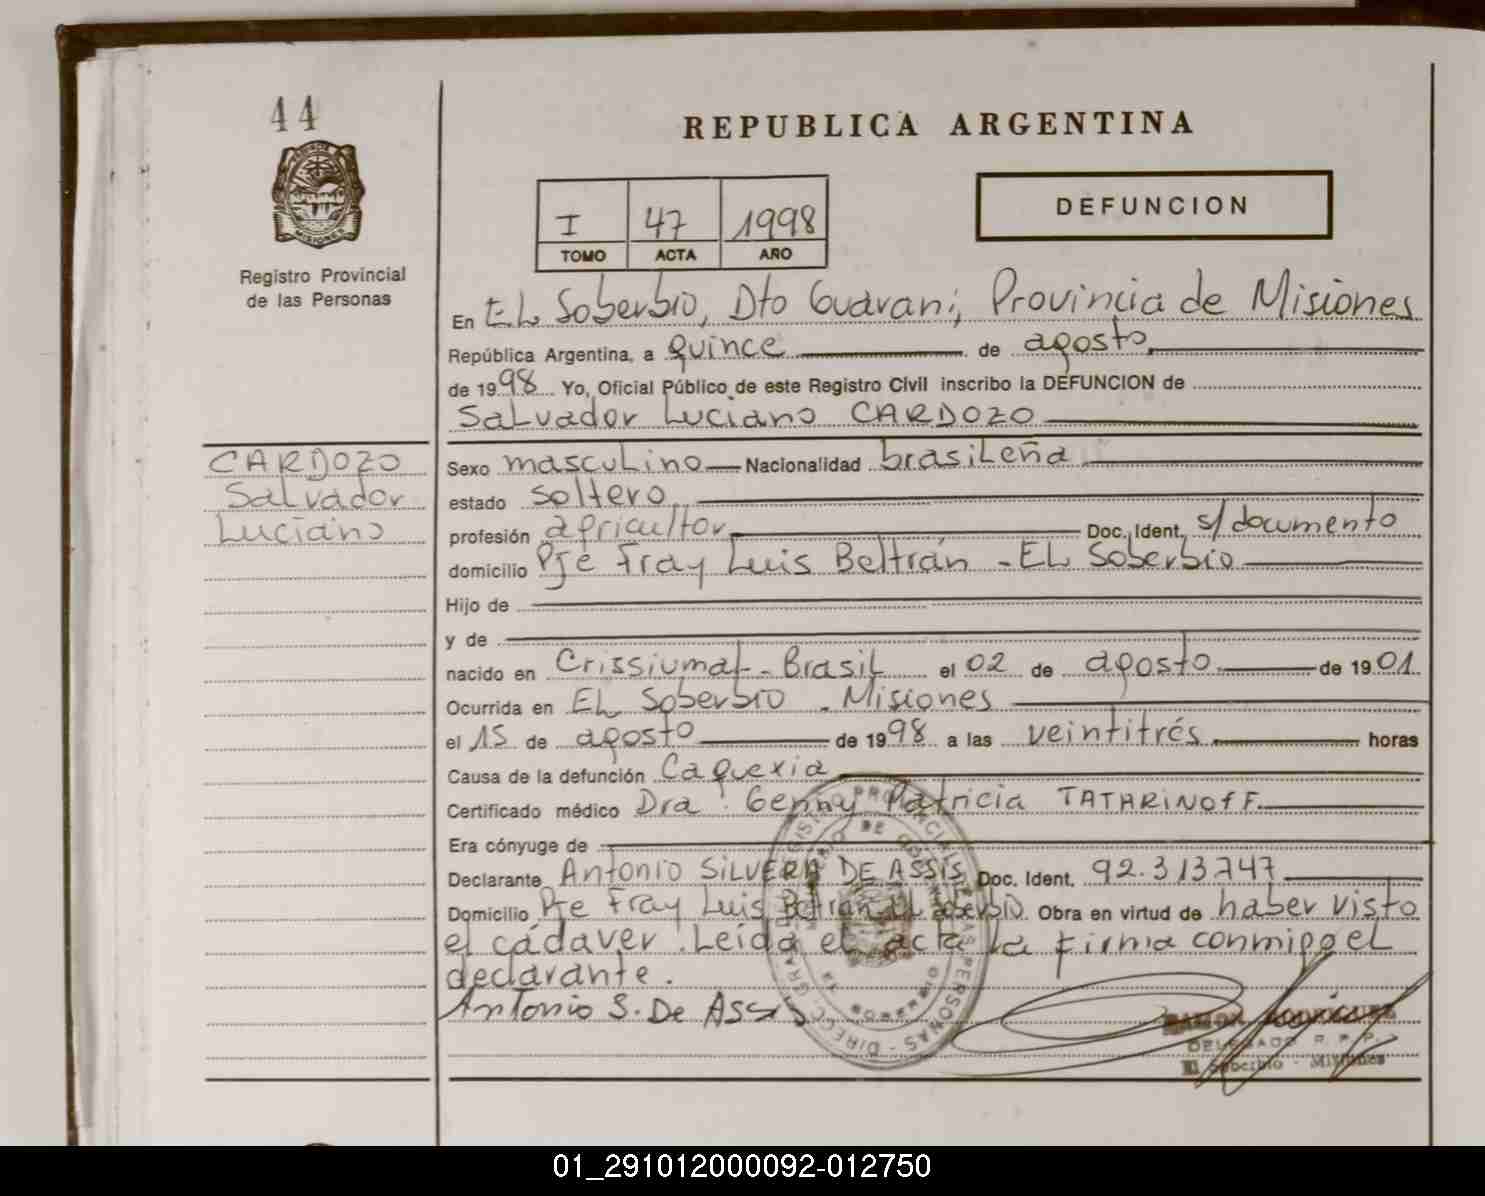 44
REPUBLICA ARGENTINA
MISIONES
Registro Provincial
de las Personas
I 47 1998
TOMO ACTA AÑO
DEFUNCION
En EL Soberbio, Dto Guarani, Provincia de Misiones
República Argentina, a quince de agosto
de 1998 Yo, Oficial Público de este Registro Civil inscribo la DEFUNCION de
Salvador Luciano CARDOZO
CARDOZO
Salvador
Luciano
Sexo masculino Nacionalidad brasileña
estado soltero
profesión agricultor Doc. Ident. s/documento
domicilio Pje Fray Luis Beltrán - EL Soberbio
Hijo de
y de
nacido en Crissiumal - Brasil el 02 de agosto de 1901
Ocurrida en EL Soberbio - Misiones
el 15 de agosto de 1998 a las veintitrés horas
Causa de la defunción Caquexia
Certificado médico Dra. Genny Patricia TATARINOFF
Era cónyuge de
Declarante Antonio SILVERA DE ASSIS Doc. Ident. 92.313747
Domicilio Pje Fray Luis Beltrán EL Soberbio Obra en virtud de haber visto
el cádaver. Leída el acta la firma conmigo el
declarante.
Antonio S. De Assis
RAMON RODRIGUEZ
DELEGADO R. P. P.
El Soberbio - Misiones
01_291012000092-012750